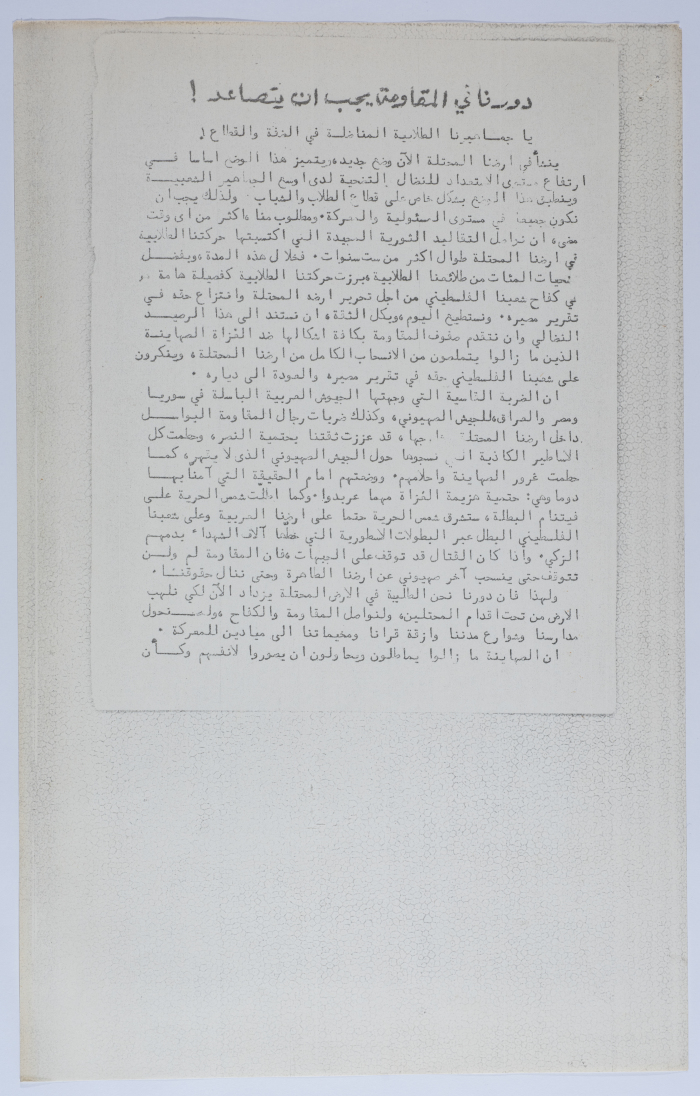 دورنا في المقاومة يجب ان يتصاعد !
يا جماهيرنا الطلابية المناضلة في الضفة والقطاع !
ينشأ في ارضنا المحتلة الآن وضع جديد، ويتميز هذا الوضع اساسا فــي
ارتفاع مستوى الاستعداد للنضال والتضحية لدى اوسع الجماهير الشعبيــة
وينطبق هذا الوضع بشكل خاص على قطاع الطلاب والشباب ٠ ولذلك يجب ان
نكون جميعا في مستوى المسئولية والمعركة ٠ ومطلوب منا، اكثر من اى وقت
مضى، ان نواصل التقاليد الثورية المجيدة التي اكتسبتها حركتنا الطلابية
في ارضنا المحتلة طوال اكثر من ست سنوات ٠ فخلال هذه المدة، وبفضــل
تضحيات المئات من طلائعنا الطلابية، برزت حركتنا الطلابية كفصيلة هامة
في كفاح شعبنا الفلسطيني من اجل تحرير ارضه المحتلة وانتزاع حقه فــي
تقرير مصيره ٠ ونستطيع اليوم، وبكل الثقة، ان نستند الى هذا الرصيــد
النضالي وان نتقدم صفوف المقاومة بكافة اشكالها ضد الغزاة الصهاينــة
الذين ما زالوا يتملصون من الانسحاب الكامل من ارضنا المحتلة، وينكرون
على شعبنا الفلسطيني حقه في تقرير مصيره والعودة الى دياره ٠
ان الضربة القاسية التي وجهتها الجيوش العربية الباسلة في سوريــا
ومصر والعراق، للجيش الصهيوني، وكذلك ضربات رجال المقاومة البواســل
داخل ارضنا المحتلة قد عززت ثقتنا بحتمية النصر، وحطمت كل
الاساطير الكاذبة التي نسجوها حول الجيش الصهيوني الذى لا يقهر، كمــا
حطمت غرور الصهاينة واحلامهم ٠ ووضعتهم امام الحقيقة التي آمنا بهــا
دوما وهي: حتمية هزيمة الغزاة مهما عربدوا ٠ وكما اطلّت شمس الحرية علــى
فيتنام البطلة، ستشرق شمس الحرية حتما على ارضنا العربية وعلى شعبنا
الفلسطيني البطل عبر البطولات الاسطورية التي خطّها آلاف الشهداء بدمهــم
الزكي ٠ واذا كان القتال قد توقف على الجبهات، فان المقاومة لم ولــن
تتوقف حتى ينسحب آخر صهيوني عن ارضنا الطاهرة وحتى ننال حقوقنــا ٠
ولهذا فان دورنا نحن الطلبة في الارض المحتلة يزداد الآن لكي نلهب
الارض من تحت اقدام المحتلين، ولنواصل المقاومة والكفاح ، ولــنحول
مدارسنا وشوارع مدننا وازقة قرانا ومخيماتنا الى ميادين للمعركة ٠
ان الصهاينة ما زالوا يماطلون ويحاولون ان يصوروا لانفسهم وكــأن